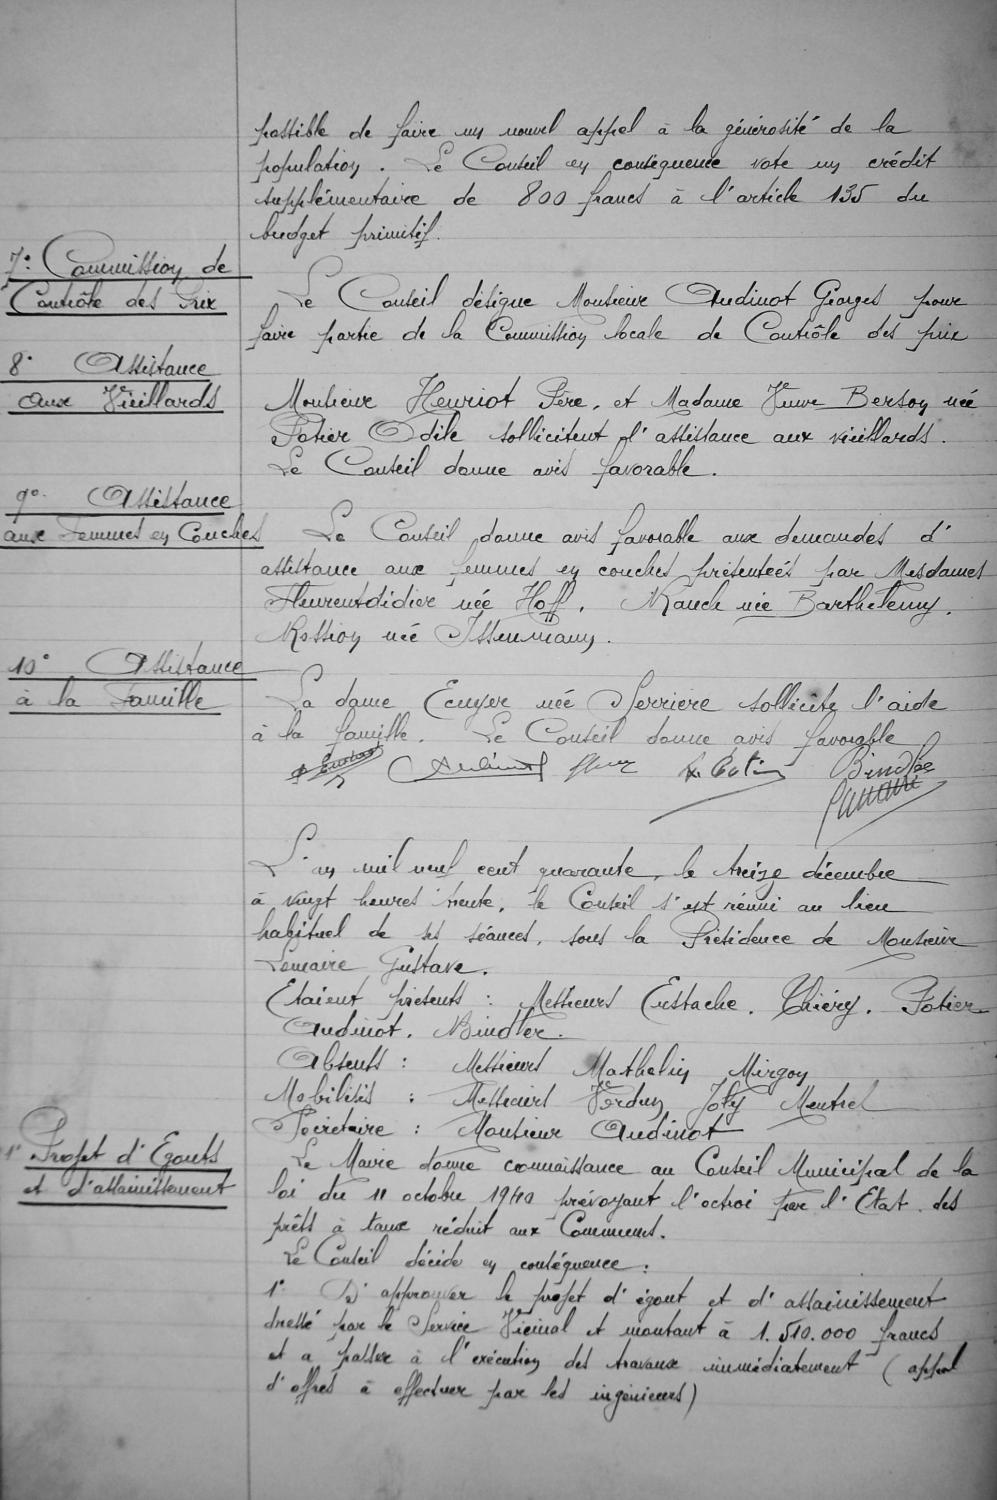 possible de faire un nouvel appel à la générosité de la
population. Le Conseil en conséquence vote un crédit
supplémentaire de 800 francs à l'article 135 du
budget primitif.
7° Commission de
Contrôle des Prix
Le Conseil désigne Monsieur Audinot Georges pour
faire partie de la Commission locale de Contrôle des prix
8° Assistance
aux Vieillards
Monsieur Henriot Père, et Madame Veuve Berson née
Potier Odile sollicitent l'assistance aux vieillards.
Le Conseil donne avis favorable.
9° Assistance
aux Femmes en Couches
Le Conseil donne avis favorable aux demandes d'
assistance aux femmes en couches présentées par Mesdames
Fleurentdidier née Hoff, Rauch née Barthelemy,
Rossion née Issenmann.
10° Assistance
à la Famille
La dame Ecuyer née Serrière sollicite l'aide
à la famille. Le Conseil donne avis favorable
Eustache Audinot Potier Bindler
Lemaire
L'an mil neuf cent quarante, le treize décembre
à vingt heures trente, le Conseil s'est réuni au lieu
habituel de ses séances, sous la Présidence de Monsieur
Lemaire Gustave.
Etaient présents : Messieurs Eustache, Thiéry, Potier
Audinot, Bindler.
Absents : Messieurs Mathelin Mirgon
Mobilisés : Messieurs Verdun Joly Mentrel
Secrétaire : Monsieur Audinot
1° Projet d'Egouts
et d'assainissement
Le Maire donne connaissance au Conseil Municipal de la
loi du 11 octobre 1940 prévoyant l'octroi par l'Etat des
prêts à taux réduit aux Communes.
Le Conseil décide en conséquence :
1° D'approuver le projet d'égout et d'assainissement
dressé par le Service Vicinal et montant à 1.510.000 francs
et a passer à l'exécution des travaux immédiatement (appel
d'offres à effectuer par les ingénieurs)